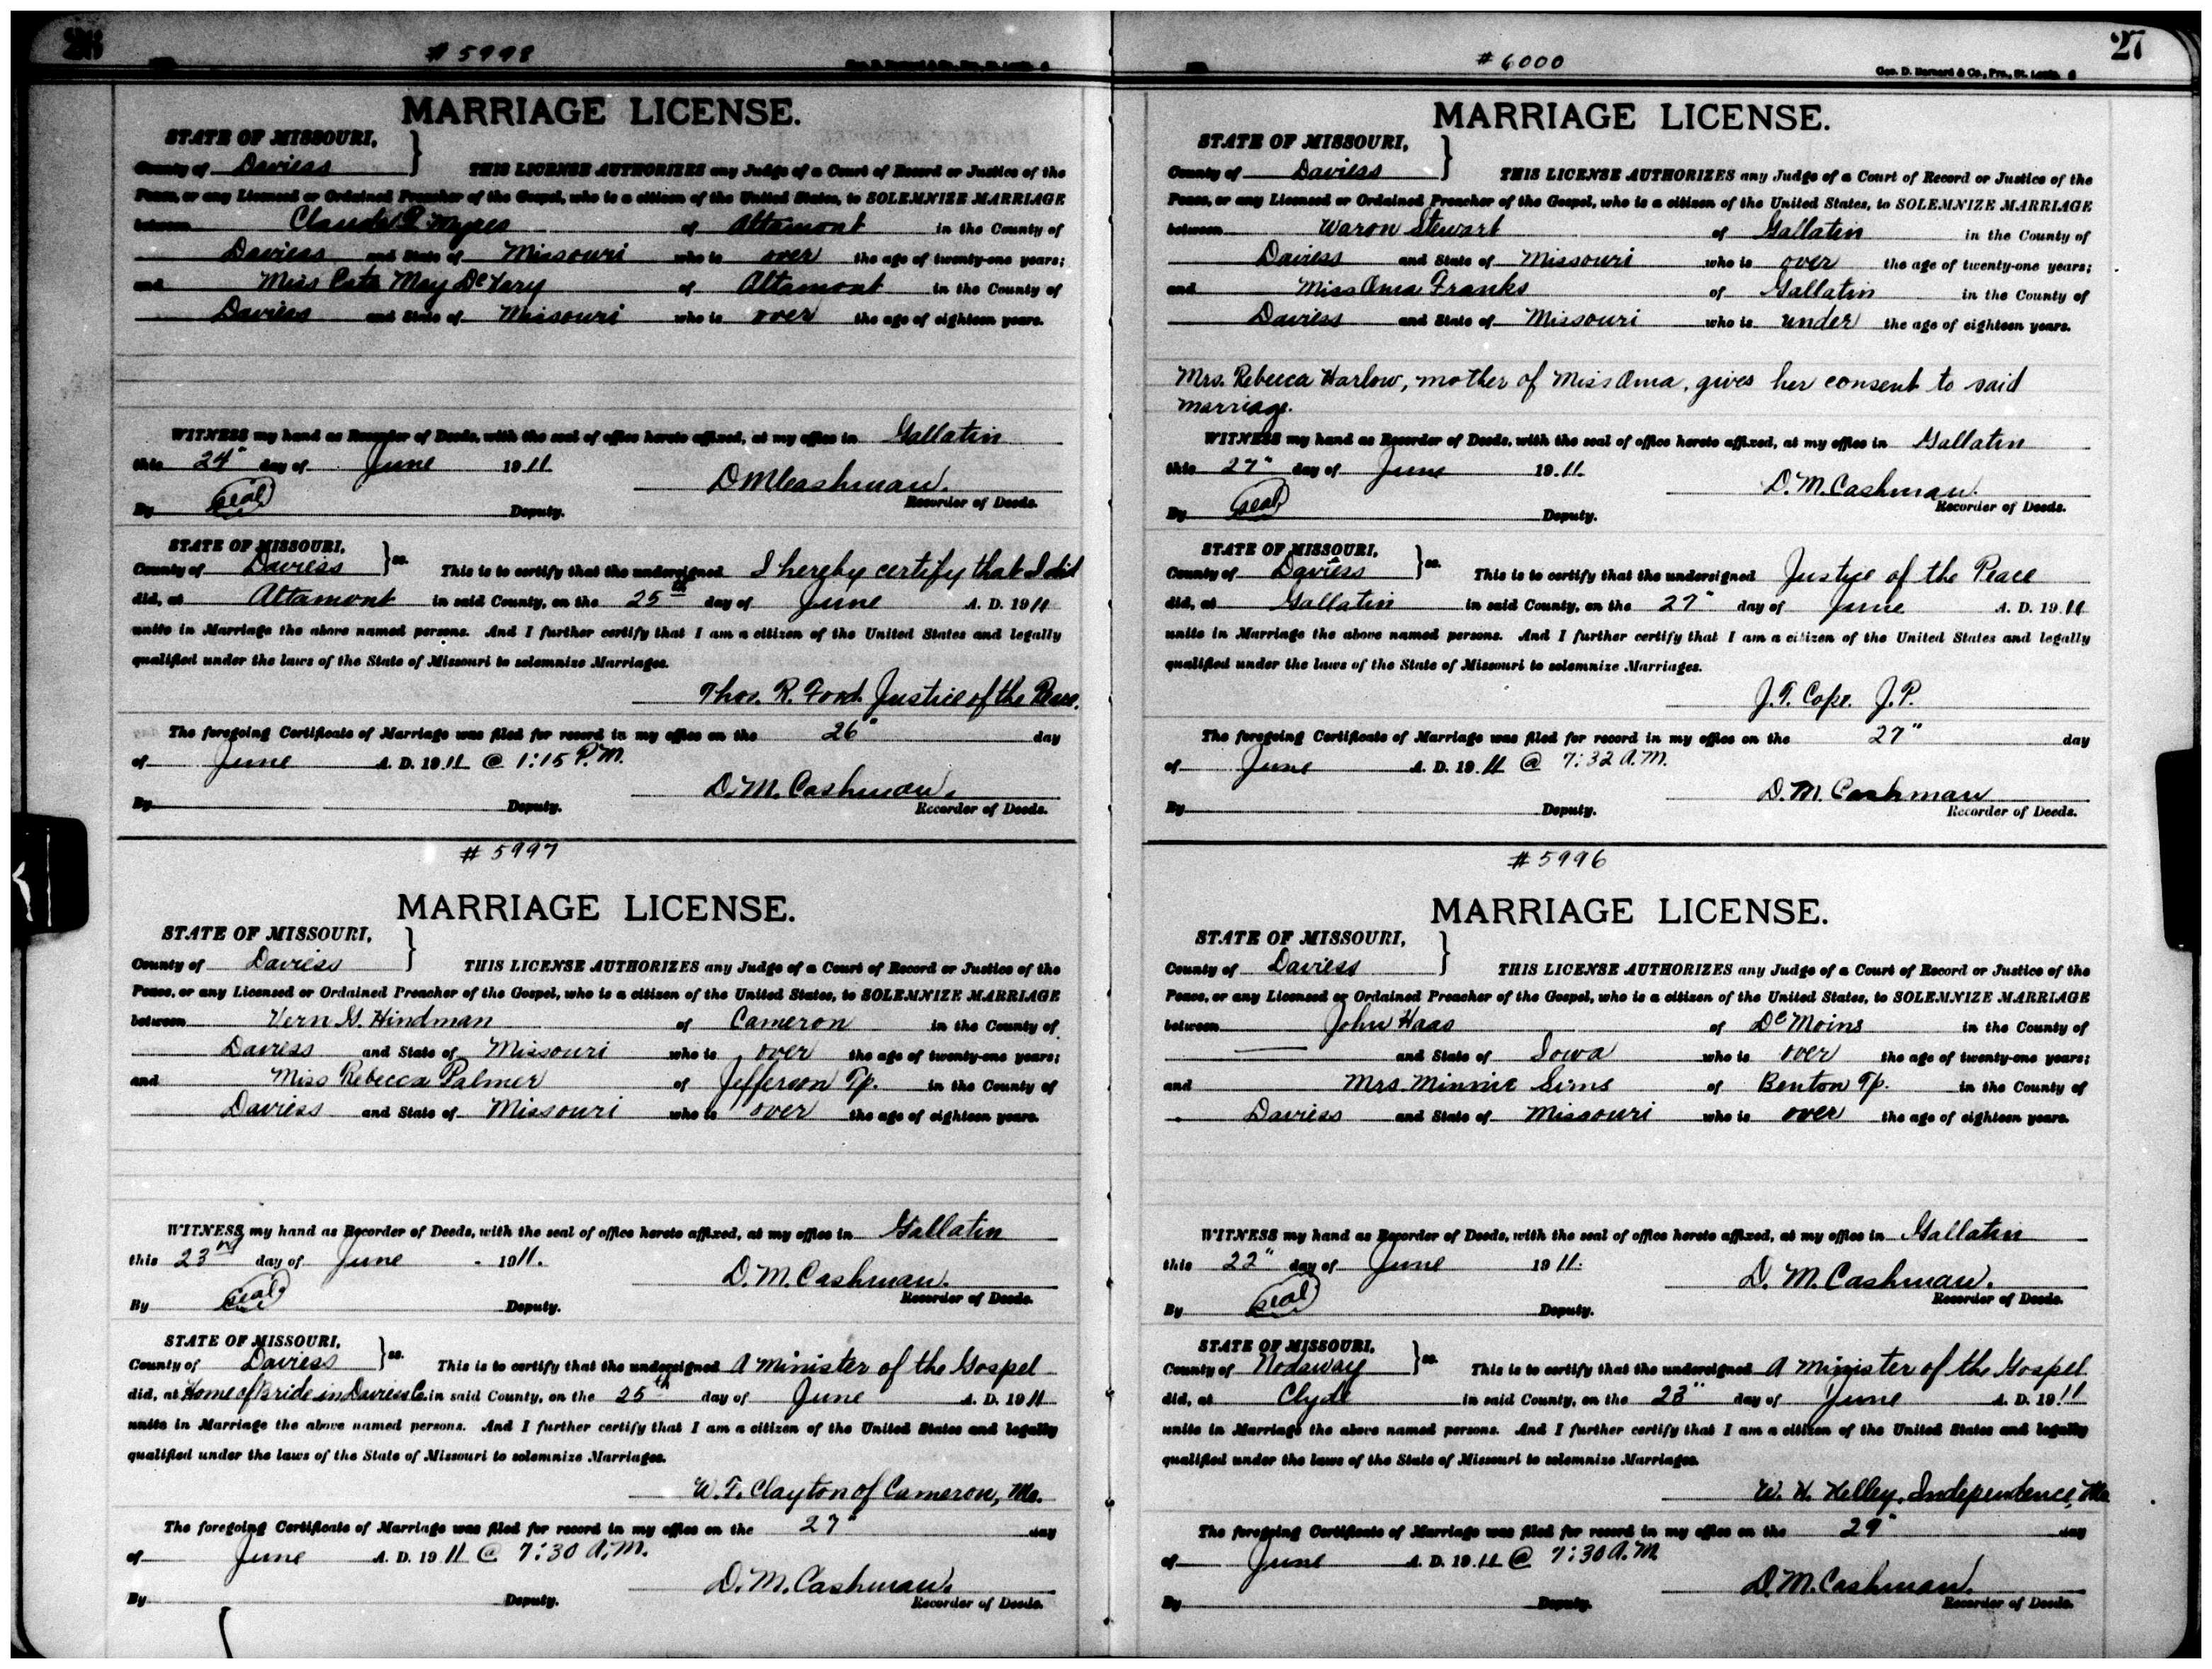 26
# 5998
MARRIAGE LICENSE.
STATE OF MISSOURI,
County of Daviess } THIS LICENSE AUTHORIZES any Judge of a Court of Record or Justice of the
Peace, or any Licensed or Ordained Preacher of the Gospel, who is a citizen of the United States, to SOLEMNIZE MARRIAGE
between Claude of Altamont in the County of
Daviess and State of Missouri who is over the age of twenty-one years;
and Miss May of Altamont in the County of
Daviess and State of Missouri who is over the age of eighteen years.
WITNESS my hand as Recorder of Deeds, with the seal of office hereto affixed, at my office in Gallatin
this 24" day of June 1911
D M Cashman.
Recorder of Deeds.
By seal Deputy.
STATE OF MISSOURI,
County of Daviess } ss. This is to certify that the undersigned I hereby certify that I did
did, at Altamont in said County, on the 25th day of June A. D. 1911
unite in Marriage the above named persons. And I further certify that I am a citizen of the United States and legally
qualified under the laws of the State of Missouri to solemnize Marriages.
Thos. R. Ford. Justice of the Peace.
The foregoing Certificate of Marriage was filed for record in my office on the 26" day
of June A. D. 1911 @ 1:15 P.M.
D. M. Cashman.
By Deputy. Recorder of Deeds.
# 5997
MARRIAGE LICENSE.
STATE OF MISSOURI,
County of Daviess } THIS LICENSE AUTHORIZES any Judge of a Court of Record or Justice of the
Peace, or any Licensed or Ordained Preacher of the Gospel, who is a citizen of the United States, to SOLEMNIZE MARRIAGE
between Vern G. Hindman of Cameron in the County of
Daviess and State of Missouri who is over the age of twenty-one years;
and Miss Rebecca Palmer of Jefferson Tp. in the County of
Daviess and State of Missouri who is over the age of eighteen years.
WITNESS my hand as Recorder of Deeds, with the seal of office hereto affixed, at my office in Gallatin
this 23rd day of June 1911.
D. M. Cashman.
Recorder of Deeds.
By seal Deputy.
STATE OF MISSOURI,
County of Daviess } ss. This is to certify that the undersigned A Minister of the Gospel
did, at Home of Bride in Daviess Co. in said County, on the 25th day of June A. D. 1911
unite in Marriage the above named persons. And I further certify that I am a citizen of the United States and legally
qualified under the laws of the State of Missouri to solemnize Marriages.
W. T. Clayton of Cameron, Mo.
The foregoing Certificate of Marriage was filed for record in my office on the 27" day
of June A. D. 1911 @ 7:30 A.M.
D. M. Cashman.
By Deputy. Recorder of Deeds.
27
# 6000
Geo. D. Barnard & Co., Pro., St. Louis.
MARRIAGE LICENSE.
STATE OF MISSOURI,
County of Daviess } THIS LICENSE AUTHORIZES any Judge of a Court of Record or Justice of the
Peace, or any Licensed or Ordained Preacher of the Gospel, who is a citizen of the United States, to SOLEMNIZE MARRIAGE
between Waron Stewart of Gallatin in the County of
Daviess and State of Missouri who is over the age of twenty-one years;
and Miss Oma Franks of Gallatin in the County of
Daviess and State of Missouri who is under the age of eighteen years.
Mrs. Rebecca Harlow, mother of Miss Oma, gives her consent to said
marriage.
WITNESS my hand as Recorder of Deeds, with the seal of office hereto affixed, at my office in Gallatin
this 27" day of June 1911.
D. M. Cashman.
Recorder of Deeds.
By seal Deputy.
STATE OF MISSOURI,
County of Daviess } ss. This is to certify that the undersigned Justice of the Peace
did, at Gallatin in said County, on the 27" day of June A. D. 1911
unite in Marriage the above named persons. And I further certify that I am a citizen of the United States and legally
qualified under the laws of the State of Missouri to solemnize Marriages.
J. T. Cope. J. P.
The foregoing Certificate of Marriage was filed for record in my office on the 27" day
of June A. D. 1911 @ 7:32 A.M.
D. M. Cashman
By Deputy. Recorder of Deeds.
# 5996
MARRIAGE LICENSE.
STATE OF MISSOURI,
County of Daviess } THIS LICENSE AUTHORIZES any Judge of a Court of Record or Justice of the
Peace, or any Licensed or Ordained Preacher of the Gospel, who is a citizen of the United States, to SOLEMNIZE MARRIAGE
between John Haas of De Moins in the County of
— and State of Iowa who is over the age of twenty-one years;
and Mrs. Minnie Sims of Benton Tp. in the County of
Daviess and State of Missouri who is over the age of eighteen years.
WITNESS my hand as Recorder of Deeds, with the seal of office hereto affixed, at my office in Gallatin
this 22" day of June 1911.
D. M. Cashman.
Recorder of Deeds.
By seal Deputy.
STATE OF MISSOURI,
County of Nodaway } ss. This is to certify that the undersigned A Minister of the Gospel
did, at Clyde in said County, on the 23" day of June A. D. 1911
unite in Marriage the above named persons. And I further certify that I am a citizen of the United States and legally
qualified under the laws of the State of Missouri to solemnize Marriages.
W. H. Kelley, Independence, Mo
The foregoing Certificate of Marriage was filed for record in my office on the 29" day
of June A. D. 1911 @ 7:30 A.M.
D. M. Cashman.
By Deputy. Recorder of Deeds.